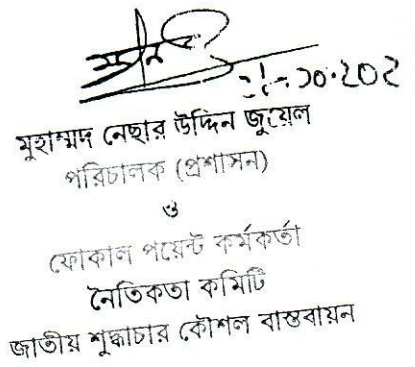 মুহাম্মদ নেছার উদ্দিন জুয়েল
পরিচালক (প্রশাসন)
ও
ফোকাল পয়েন্ট কর্মকর্তা
নৈতিকতা কমিটি
জাতীয় শুদ্ধাচার কৌশল বাস্তবায়ন